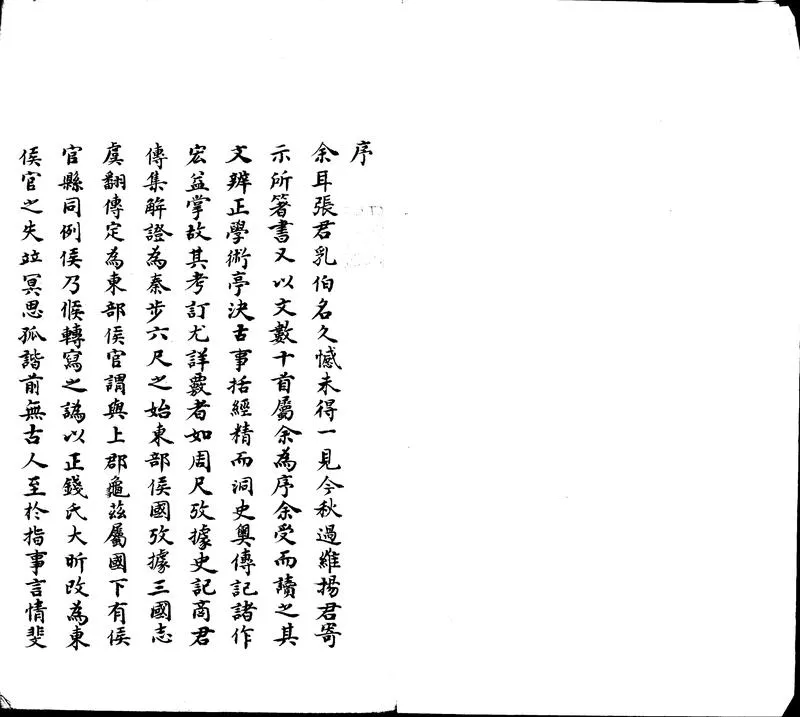 序
余耳張君乳伯名久憾未得一見今秋過維揚君寄
示所箸書又以文數十首屬余為序余受而讀之其
文辨正學術亭決古事括經精而洞史奧傳記諸作
宏益掌故其考訂尤詳覈者如周尺攷據史記商君
傳集解證為秦步六尺之始東部矦國攷據三國志
虞翻傳定為東部矦官謂與上郡龜茲屬國下有矦
官縣同例矦乃候轉寫之譌以正錢氏大昕改為東
矦官之失竝冥思孤詣前無古人至於指事言情斐